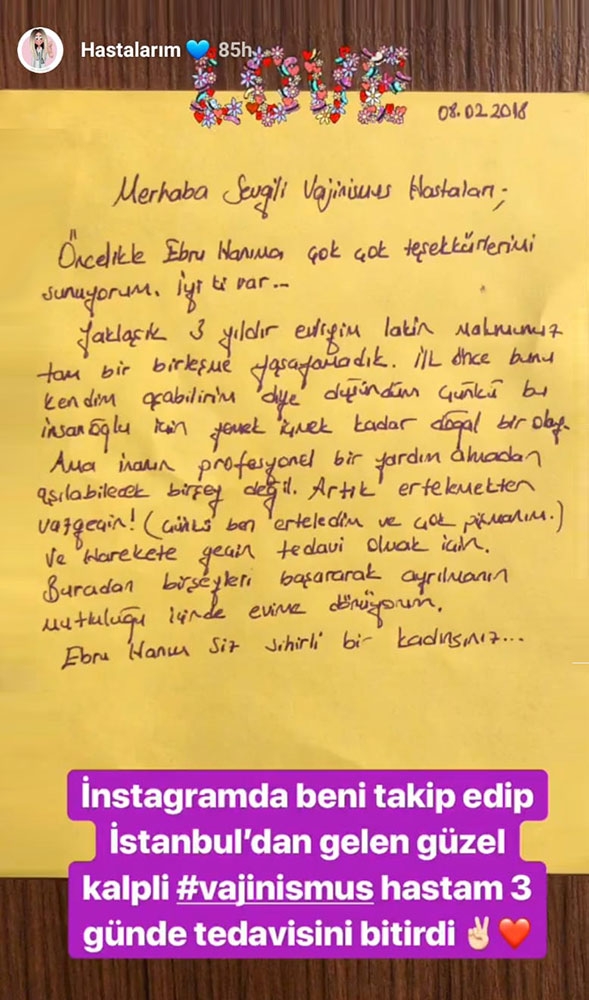 Hastalarım 💙 85h
LOVE
08.02.2018
Merhaba Sevgili Vajinismus Hastaları;
Öncelikle Ebru Hanıma çok çok teşekkürlerimi
sunuyorum. İyi ki var...
Yaklaşık 3 yıldır evliyim lakin
tam bir birleşme yaşayamadık. İlk önce bunu
kendim aşabilirim diye düşündüm çünkü bu
insanoğlu için yemek içmek kadar doğal bir olay.
Ama inanın profesyonel bir yardım almadan
aşılabilecek birşey değil. Artık ertelemekten
vazgeçin! (Çünkü ben erteledim ve çok pişmanım.)
Ve Harekete geçin tedavi olmak için.
Buradan birşeyleri başararak ayrılmanın
mutluluğu içinde evime dönüyorum.
Ebru Hanım Siz sihirli bir kadınsınız...
İnstagramda beni takip edip
İstanbul’dan gelen güzel
kalpli #vajinismus hastam 3
günde tedavisini bitirdi ✌🏻❤️